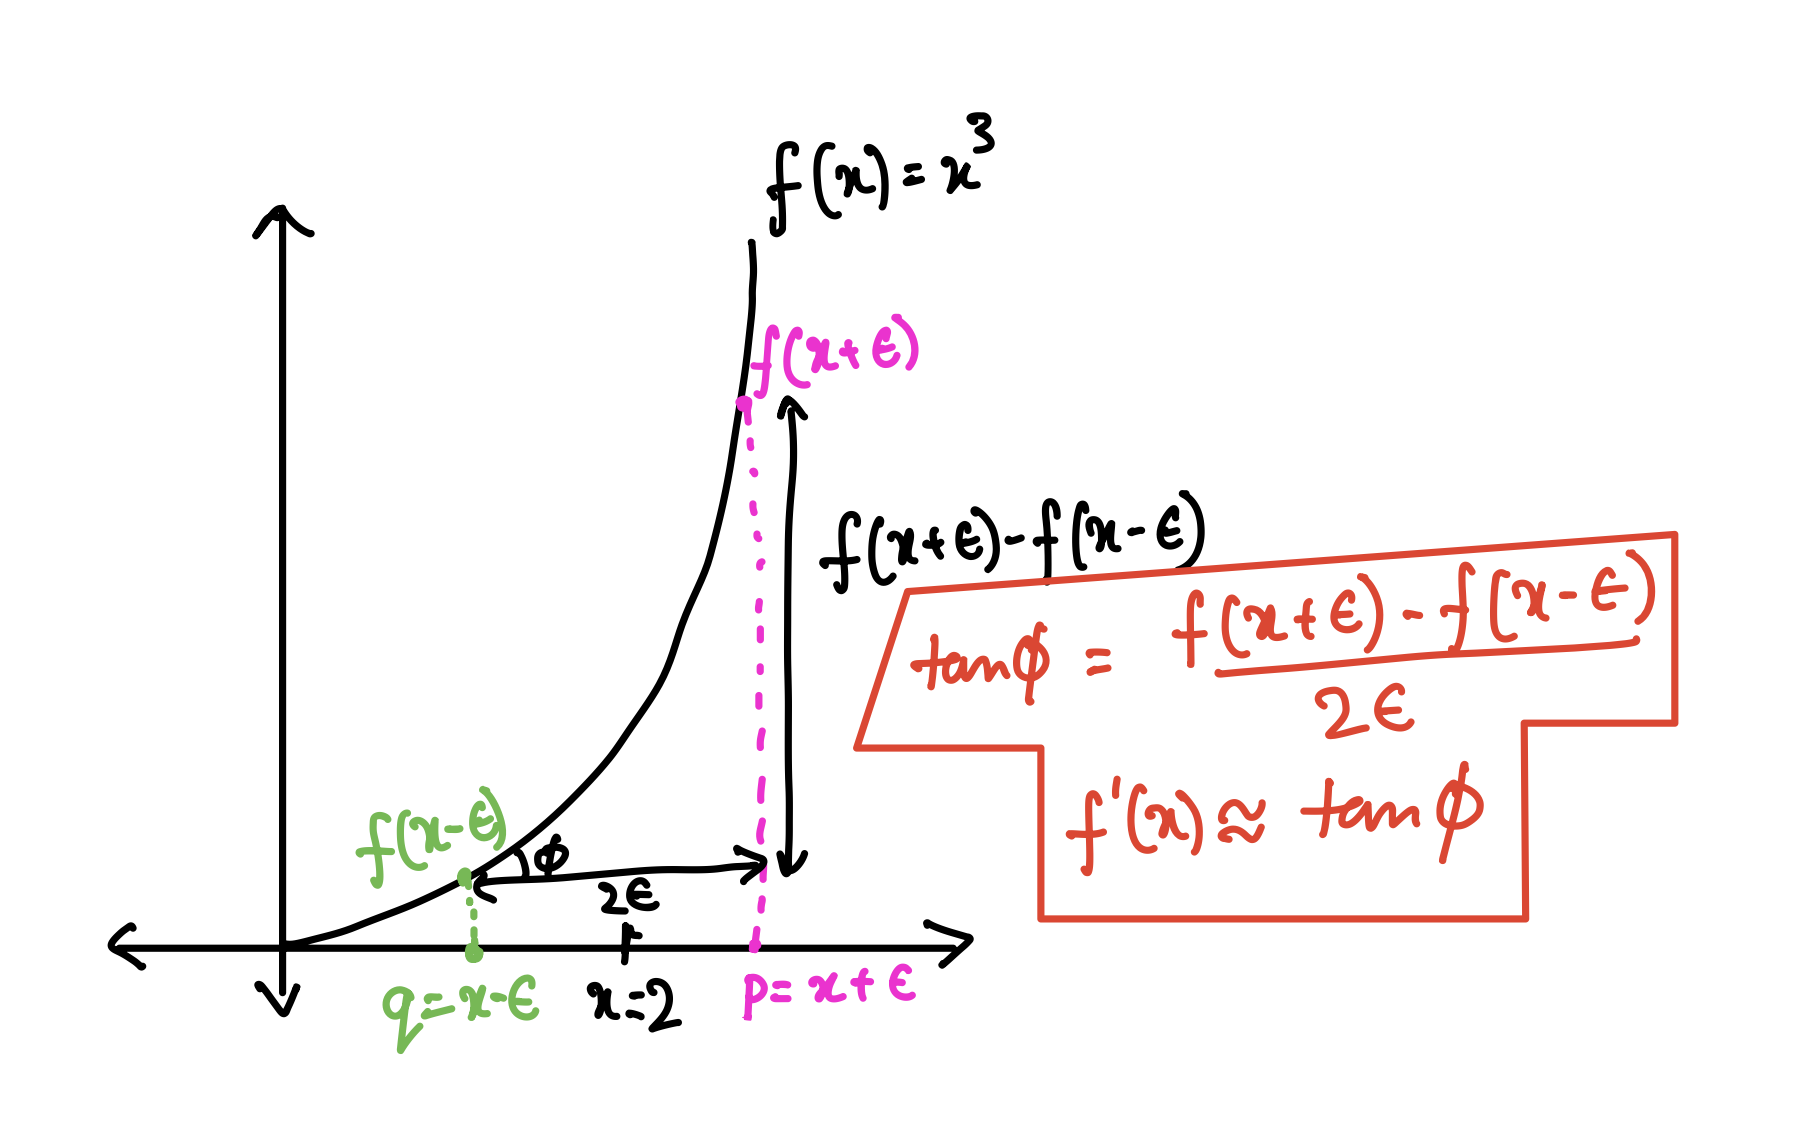 f(x) = x³
f(x+ϵ)
f(x+ϵ)-f(x-ϵ)
tanϕ = f(x+ϵ) - f(x-ϵ)
2ϵ
f'(x) ≈ tanϕ
f(x-ϵ)
ϕ
2ϵ
q=x-ϵ
x=2
p=x+ϵ